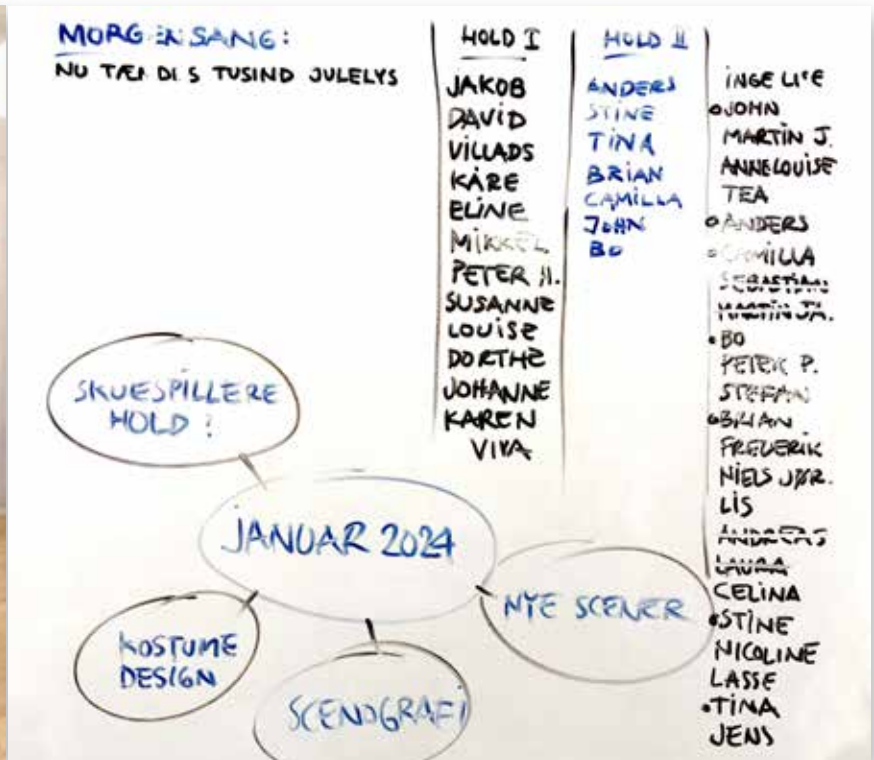 MORGENSANG:
NU TÆNDES TUSIND JULELYS
HOLD I
JAKOB
DAVID
VILLADS
KÅRE
ELINE
MIKKEL
PETER H.
SUSANNE
LOUISE
DORTHE
JOHANNE
KAREN
VIVA
HOLD II
ANDERS
STINE
TINA
BRIAN
CAMILLA
JOHN
BO
INGE LISE
JOHN
MARTIN J.
ANNELOUISE
TEA
ANDERS
CAMILLA
SEBASTIAN
MARTIN JA.
BO
PETER P.
STEFAN
BRIAN
FREDERIK
NIELS JØR.
LIS
ANDREAS
LAURA
CELINA
STINE
NICOLINE
LASSE
TINA
JENS
SKUESPILLERE
HOLD ?
JANUAR 2024
NYE SCENER
KOSTUME
DESIGN
SCENOGRAFI